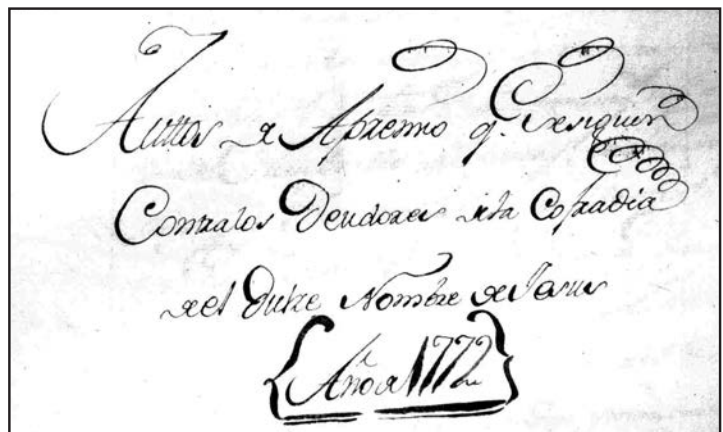 Auttos de Apremio q. se siguen
Contra los Deudores de la Cofradia
de el Dulce Nombre de Jesus
Año de 1772